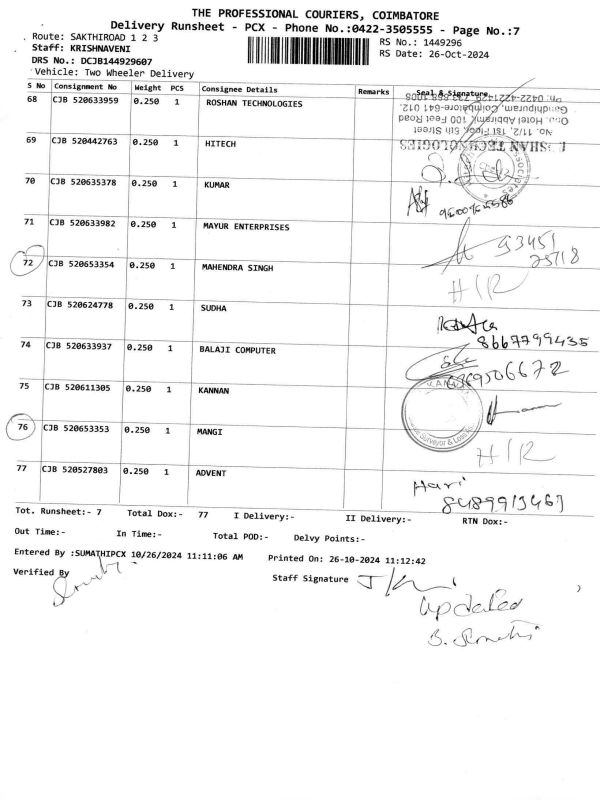 THE PROFESSIONAL COURIERS, COIMBATORE
Delivery Runsheet - PCX - Phone No.:0422-3505555 - Page No.:7
Route: SAKTHIROAD 1 2 3
RS No.: 1449296
Staff: KRISHNAVENI
RS Date: 26-Oct-2024
DRS No.: DCJB144929607
Vehicle: Two Wheeler Delivery
S No Consignment No Weight PCS Consignee Details Remarks Seal & Signature
68 CJB 520633959 0.250 1 ROSHAN TECHNOLOGIES
SHAN TECHNOLOGIES
No. 11/2, 1st Floor, 6th Street
Opp. Hotel Abirami, 100 Feet Road
Gandhipuram, Coimbatore-641 012.
Ph: 0422-4221429
69 CJB 520442763 0.250 1 HITECH
70 CJB 520635378 0.250 1 KUMAR
71 CJB 520633982 0.250 1 MAYUR ENTERPRISES
93451
25718
72 CJB 520653354 0.250 1 MAHENDRA SINGH
H/R
73 CJB 520624778 0.250 1 SUDHA
8667799435
74 CJB 520633937 0.250 1 BALAJI COMPUTER
75 CJB 520611305 0.250 1 KANNAN
Surveyor & Loss
76 CJB 520653353 0.250 1 MANGI
H/R
77 CJB 520527803 0.250 1 ADVENT
Hari
8489913467
Tot. Runsheet:- 7 Total Dox:- 77 I Delivery:- II Delivery:- RTN Dox:-
Out Time:- In Time:- Total POD:- Delvy Points:-
Entered By :SUMATHIPCX 10/26/2024 11:11:06 AM Printed On: 26-10-2024 11:12:42
Verified By
Staff Signature
Updated